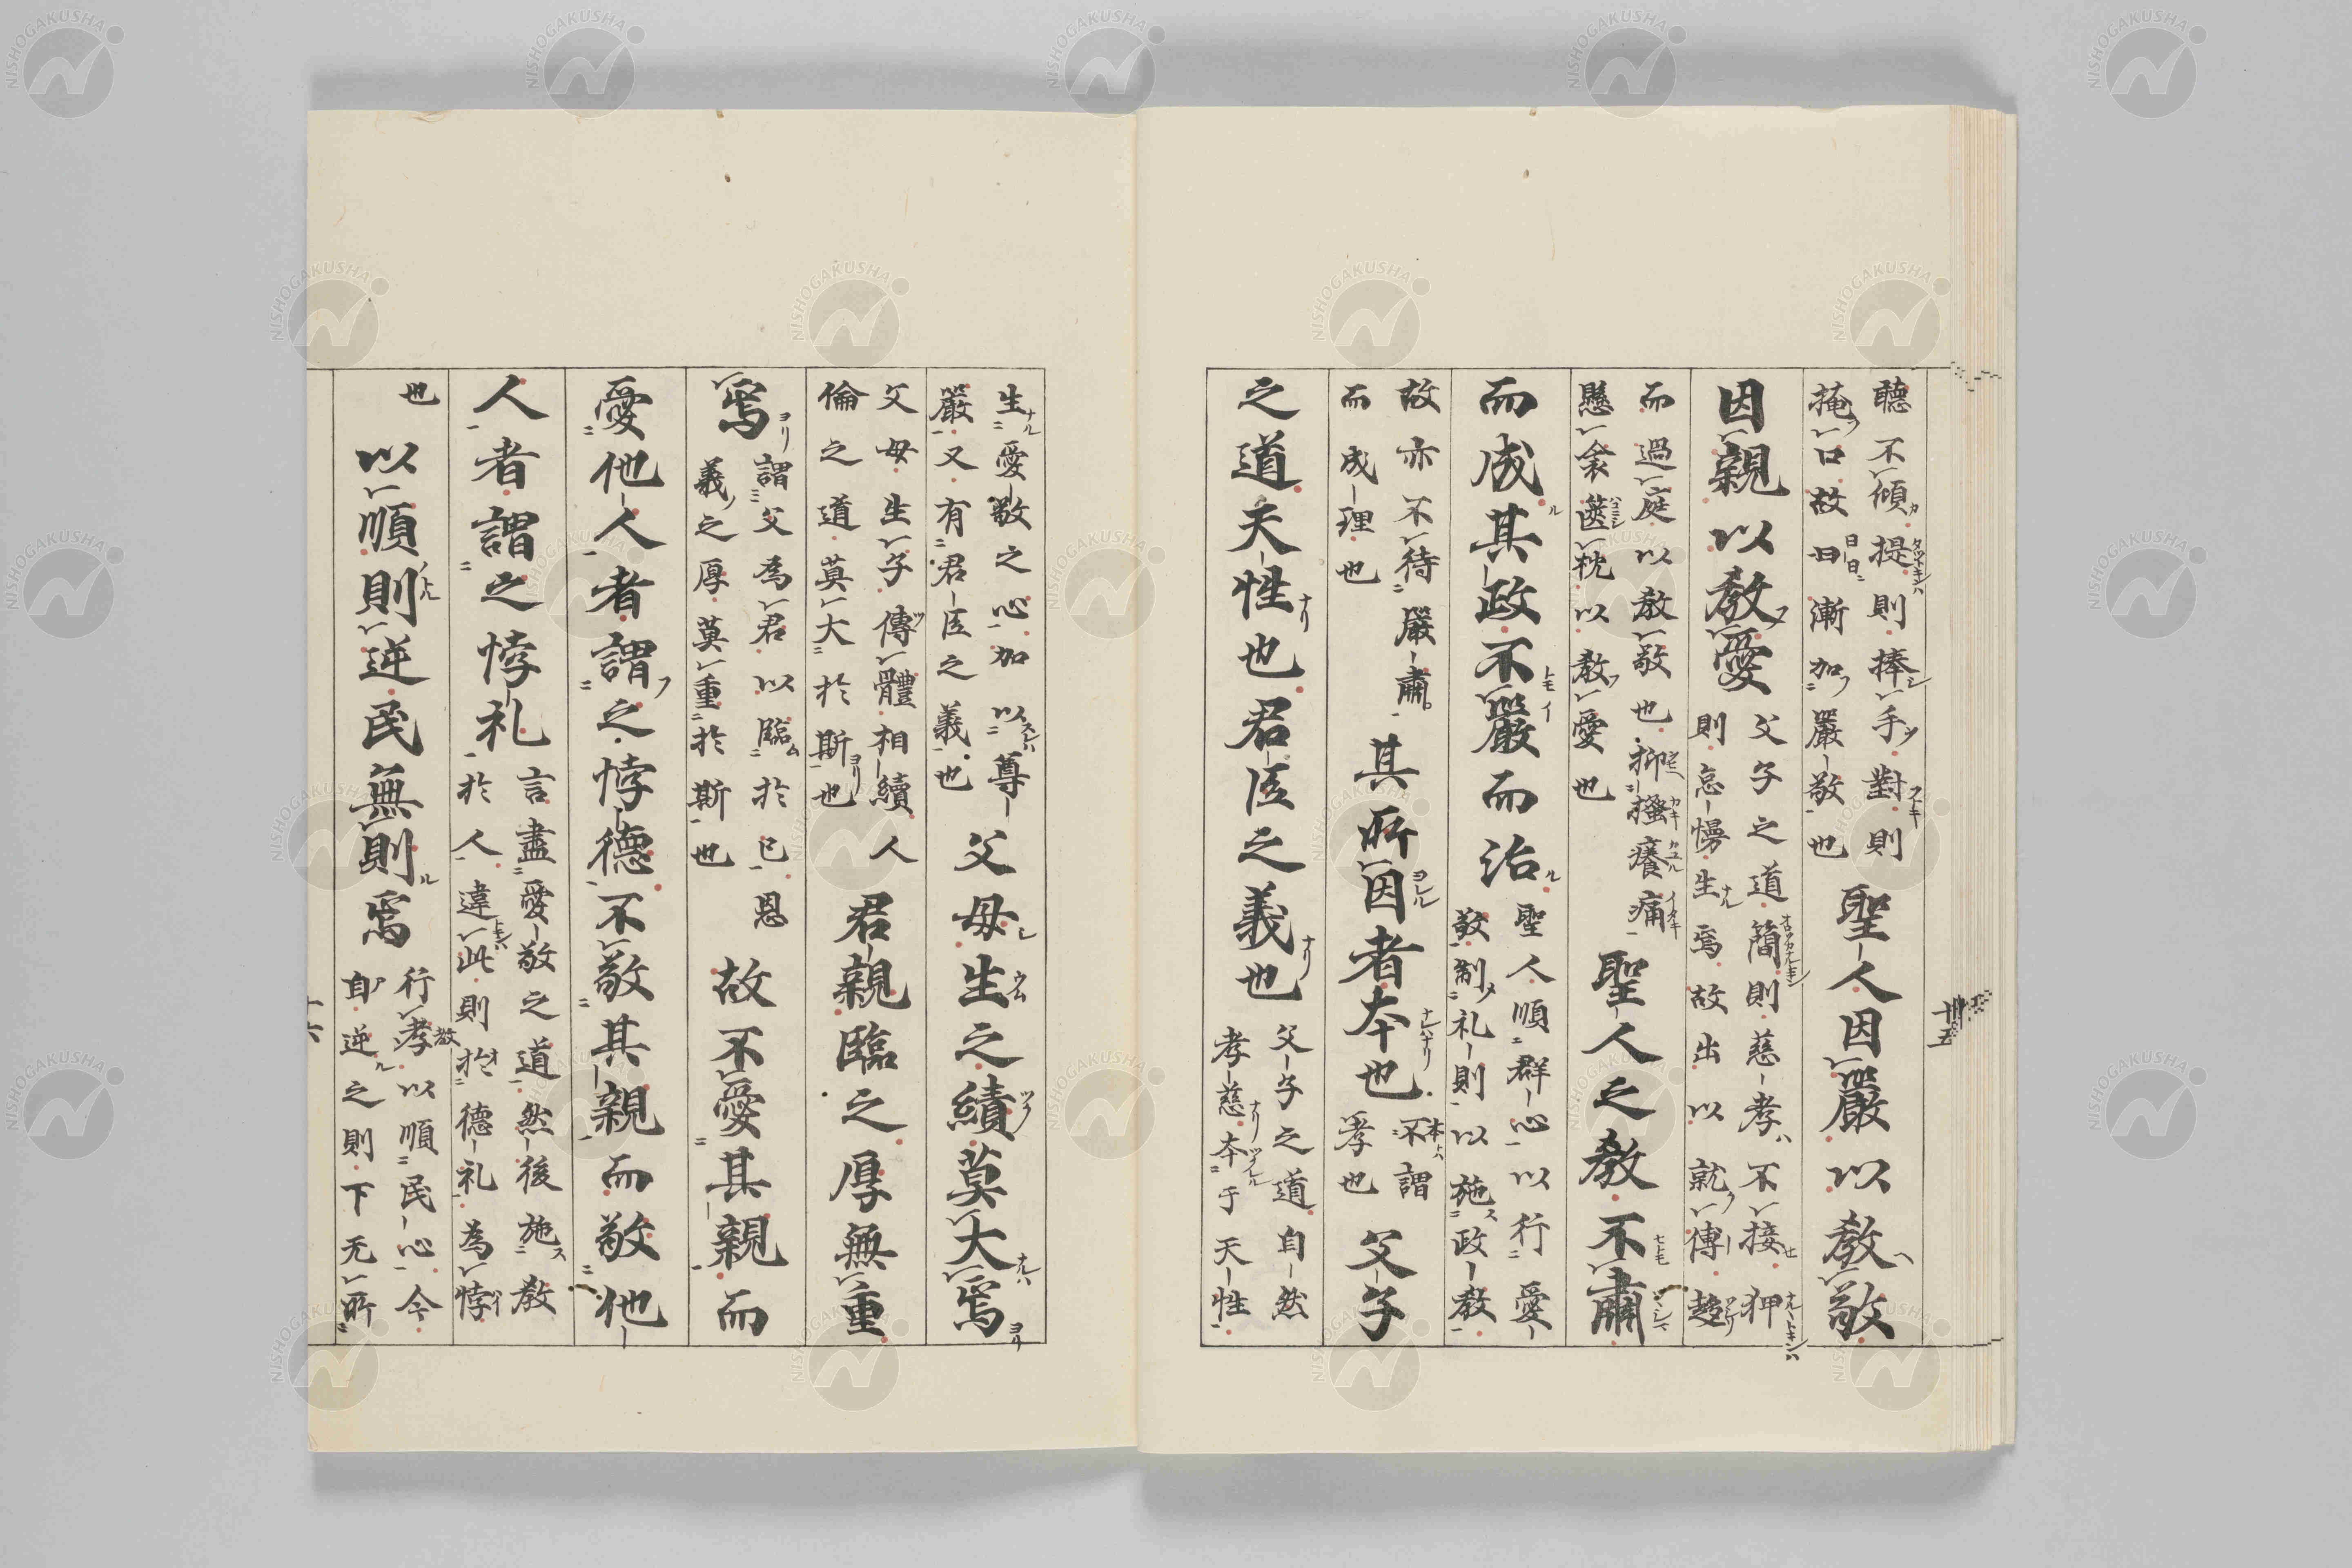 聽不傾提則捧手對則
掩口故曰漸加嚴敬也
聖人因嚴以教敬
因親以教愛
父子之道簡則慈孝不接狎
則怠慢生焉故出以就傅趍
而過庭以教敬也抑搔癢痛
懸衾篋枕以教愛也
聖人之教不肅
而成其政不嚴而治
聖人順群心以行愛
敬制礼則以施政教
故亦不待嚴肅
而成理也
其所因者本也
本不謂
孝也
父子
之道天性也君臣之義也
父子之道自然
孝慈本于天性
生愛敬之心加以尊
嚴又有君臣之義也
父母生之績莫大焉
父母生子傳體相續人
倫之道莫大於斯也
君親臨之厚無重
焉
謂父為君以臨於己恩
義之厚莫重於斯也
故不愛其親而
愛他人者謂之悖德不敬其親而敬他
人者謂之悖礼
言盡愛敬之道然後施教
於人違此則於德礼為悖
也
以順則逆民無則焉
行孝以順民心今
自逆之則下无所
NISHOGAKUSHA